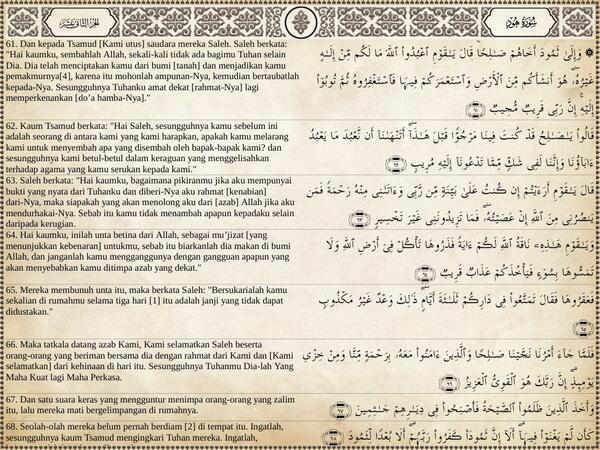 الجزء الثاني عشر
سورة هود
61. Dan kepada Tsamud [Kami utus] saudara mereka Saleh. Saleh berkata:
"Hai kaumku, sembahlah Allah, sekali-kali tidak ada bagimu Tuhan selain
Dia. Dia telah menciptakan kamu dari bumi [tanah] dan menjadikan kamu
pemakmurnya[4], karena itu mohonlah ampunan-Nya, kemudian bertaubatlah
kepada-Nya. Sesungguhnya Tuhanku amat dekat [rahmat-Nya] lagi
memperkenankan [do’a hamba-Nya]."
۞ وَإِلَىٰ ثَمُودَ أَخَاهُمْ صَـٰلِحًا قَالَ يَـٰقَوْمِ ٱعْبُدُوا۟ ٱللَّهَ مَا لَكُم مِّنْ إِلَـٰهٍ
غَيْرُهُۥ هُوَ أَنشَأَكُم مِّنَ ٱلْأَرْضِ وَٱسْتَعْمَرَكُمْ فِيهَا فَٱسْتَغْفِرُوهُ ثُمَّ تُوبُوٓا۟
إِلَيْهِ إِنَّ رَبِّى قَرِيبٌ مُّجِيبٌ ٦١
62. Kaum Tsamud berkata: "Hai Saleh, sesungguhnya kamu sebelum ini
adalah seorang di antara kami yang kami harapkan, apakah kamu melarang
kami untuk menyembah apa yang disembah oleh bapak-bapak kami? dan
sesungguhnya kami betul-betul dalam keraguan yang menggelisahkan
terhadap agama yang kamu serukan kepada kami."
قَالُوا۟ يَـٰصَـٰلِحُ قَدْ كُنتَ فِينَا مَرْجُوًّا قَبْلَ هَـٰذَآ أَتَنْهَىٰنَآ أَن نَّعْبُدَ مَا يَعْبُدُ
ءَابَآؤُنَا وَإِنَّنَا لَفِى شَكٍّ مِّمَّا تَدْعُونَآ إِلَيْهِ مُرِيبٍ ٦٢
63. Saleh berkata: "Hai kaumku, bagaimana pikiranmu jika aku mempunyai
bukti yang nyata dari Tuhanku dan diberi-Nya aku rahmat [kenabian]
dari-Nya, maka siapakah yang akan menolong aku dari [azab] Allah jika aku
mendurhakai-Nya. Sebab itu kamu tidak menambah apapun kepadaku selain
daripada kerugian.
قَالَ يَـٰقَوْمِ أَرَءَيْتُمْ إِن كُنتُ عَلَىٰ بَيِّنَةٍ مِّن رَّبِّى وَءَاتَىٰنِى مِنْهُ رَحْمَةً فَمَن
يَنصُرُنِى مِنَ ٱللَّهِ إِنْ عَصَيْتُهُۥ فَمَا تَزِيدُونَنِى غَيْرَ تَخْسِيرٍ ٦٣
64. Hai kaumku, inilah unta betina dari Allah, sebagai mu’jizat [yang
menunjukkan kebenaran] untukmu, sebab itu biarkanlah dia makan di bumi
Allah, dan janganlah kamu mengganggunya dengan gangguan apapun yang
akan menyebabkan kamu ditimpa azab yang dekat."
وَيَـٰقَوْمِ هَـٰذِهِۦ نَاقَةُ ٱللَّهِ لَكُمْ ءَايَةً فَذَرُوهَا تَأْكُلْ فِىٓ أَرْضِ ٱللَّهِ وَلَا
تَمَسُّوهَا بِسُوٓءٍ فَيَأْخُذَكُمْ عَذَابٌ قَرِيبٌ ٦٤
65. Mereka membunuh unta itu, maka berkata Saleh: "Bersukarialah kamu
sekalian di rumahmu selama tiga hari [1] itu adalah janji yang tidak dapat
didustakan."
فَعَقَرُوهَا فَقَالَ تَمَتَّعُوا۟ فِى دَارِكُمْ ثَلَـٰثَةَ أَيَّامٍ ذَٰلِكَ وَعْدٌ غَيْرُ مَكْذُوبٍ
٦٥
66. Maka tatkala datang azab Kami, Kami selamatkan Saleh beserta
orang-orang yang beriman bersama dia dengan rahmat dari Kami dan [Kami
selamatkan] dari kehinaan di hari itu. Sesungguhnya Tuhanmu Dia-lah Yang
Maha Kuat lagi Maha Perkasa.
فَلَمَّا جَآءَ أَمْرُنَا نَجَّيْنَا صَـٰلِحًا وَٱلَّذِينَ ءَامَنُوا۟ مَعَهُۥ بِرَحْمَةٍ مِّنَّا وَمِنْ خِزْىِ
يَوْمِئِذٍ إِنَّ رَبَّكَ هُوَ ٱلْقَوِىُّ ٱلْعَزِيزُ ٦٦
67. Dan satu suara keras yang mengguntur menimpa orang-orang yang zalim
itu, lalu mereka mati bergelimpangan di rumahnya.
وَأَخَذَ ٱلَّذِينَ ظَلَمُوا۟ ٱلصَّيْحَةُ فَأَصْبَحُوا۟ فِى دِيَـٰرِهِمْ جَـٰثِمِينَ ٦٧
68. Seolah-olah mereka belum pernah berdiam [2] di tempat itu. Ingatlah,
sesungguhnya kaum Tsamud mengingkari Tuhan mereka. Ingatlah,
كَأَن لَّمْ يَغْنَوْا۟ فِيهَآ أَلَآ إِنَّ ثَمُودَا۟ كَفَرُوا۟ رَبَّهُمْ أَلَا بُعْدًا لِّثَمُودَ ٦٨